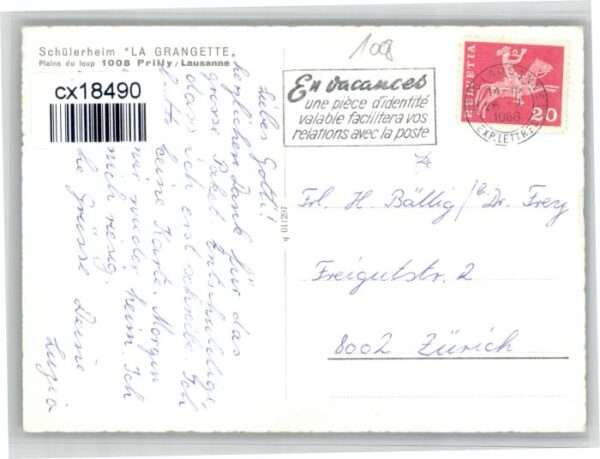 Schülerheim "LA GRANGETTE"
Plaine du loup 1008 Prilly/Lausanne
cx18490
108
En vacances
une pièce d'identité
valable facilitera vos
relations avec la poste
HELVETIA
20
EXP. LETTRES
Liebes Gotti!
herzlichen Dank für das
grosse Paket. Entschuldige
dass ich erst schreibe. Ich
keine Karte. Morgen
wir wieder heim. Ich
mich riesig.
Grüsse Deine
Luzia
k 01/297
Frl. H. Bällig / b Dr. Frey
Freigutstr. 2
8002 Zürich